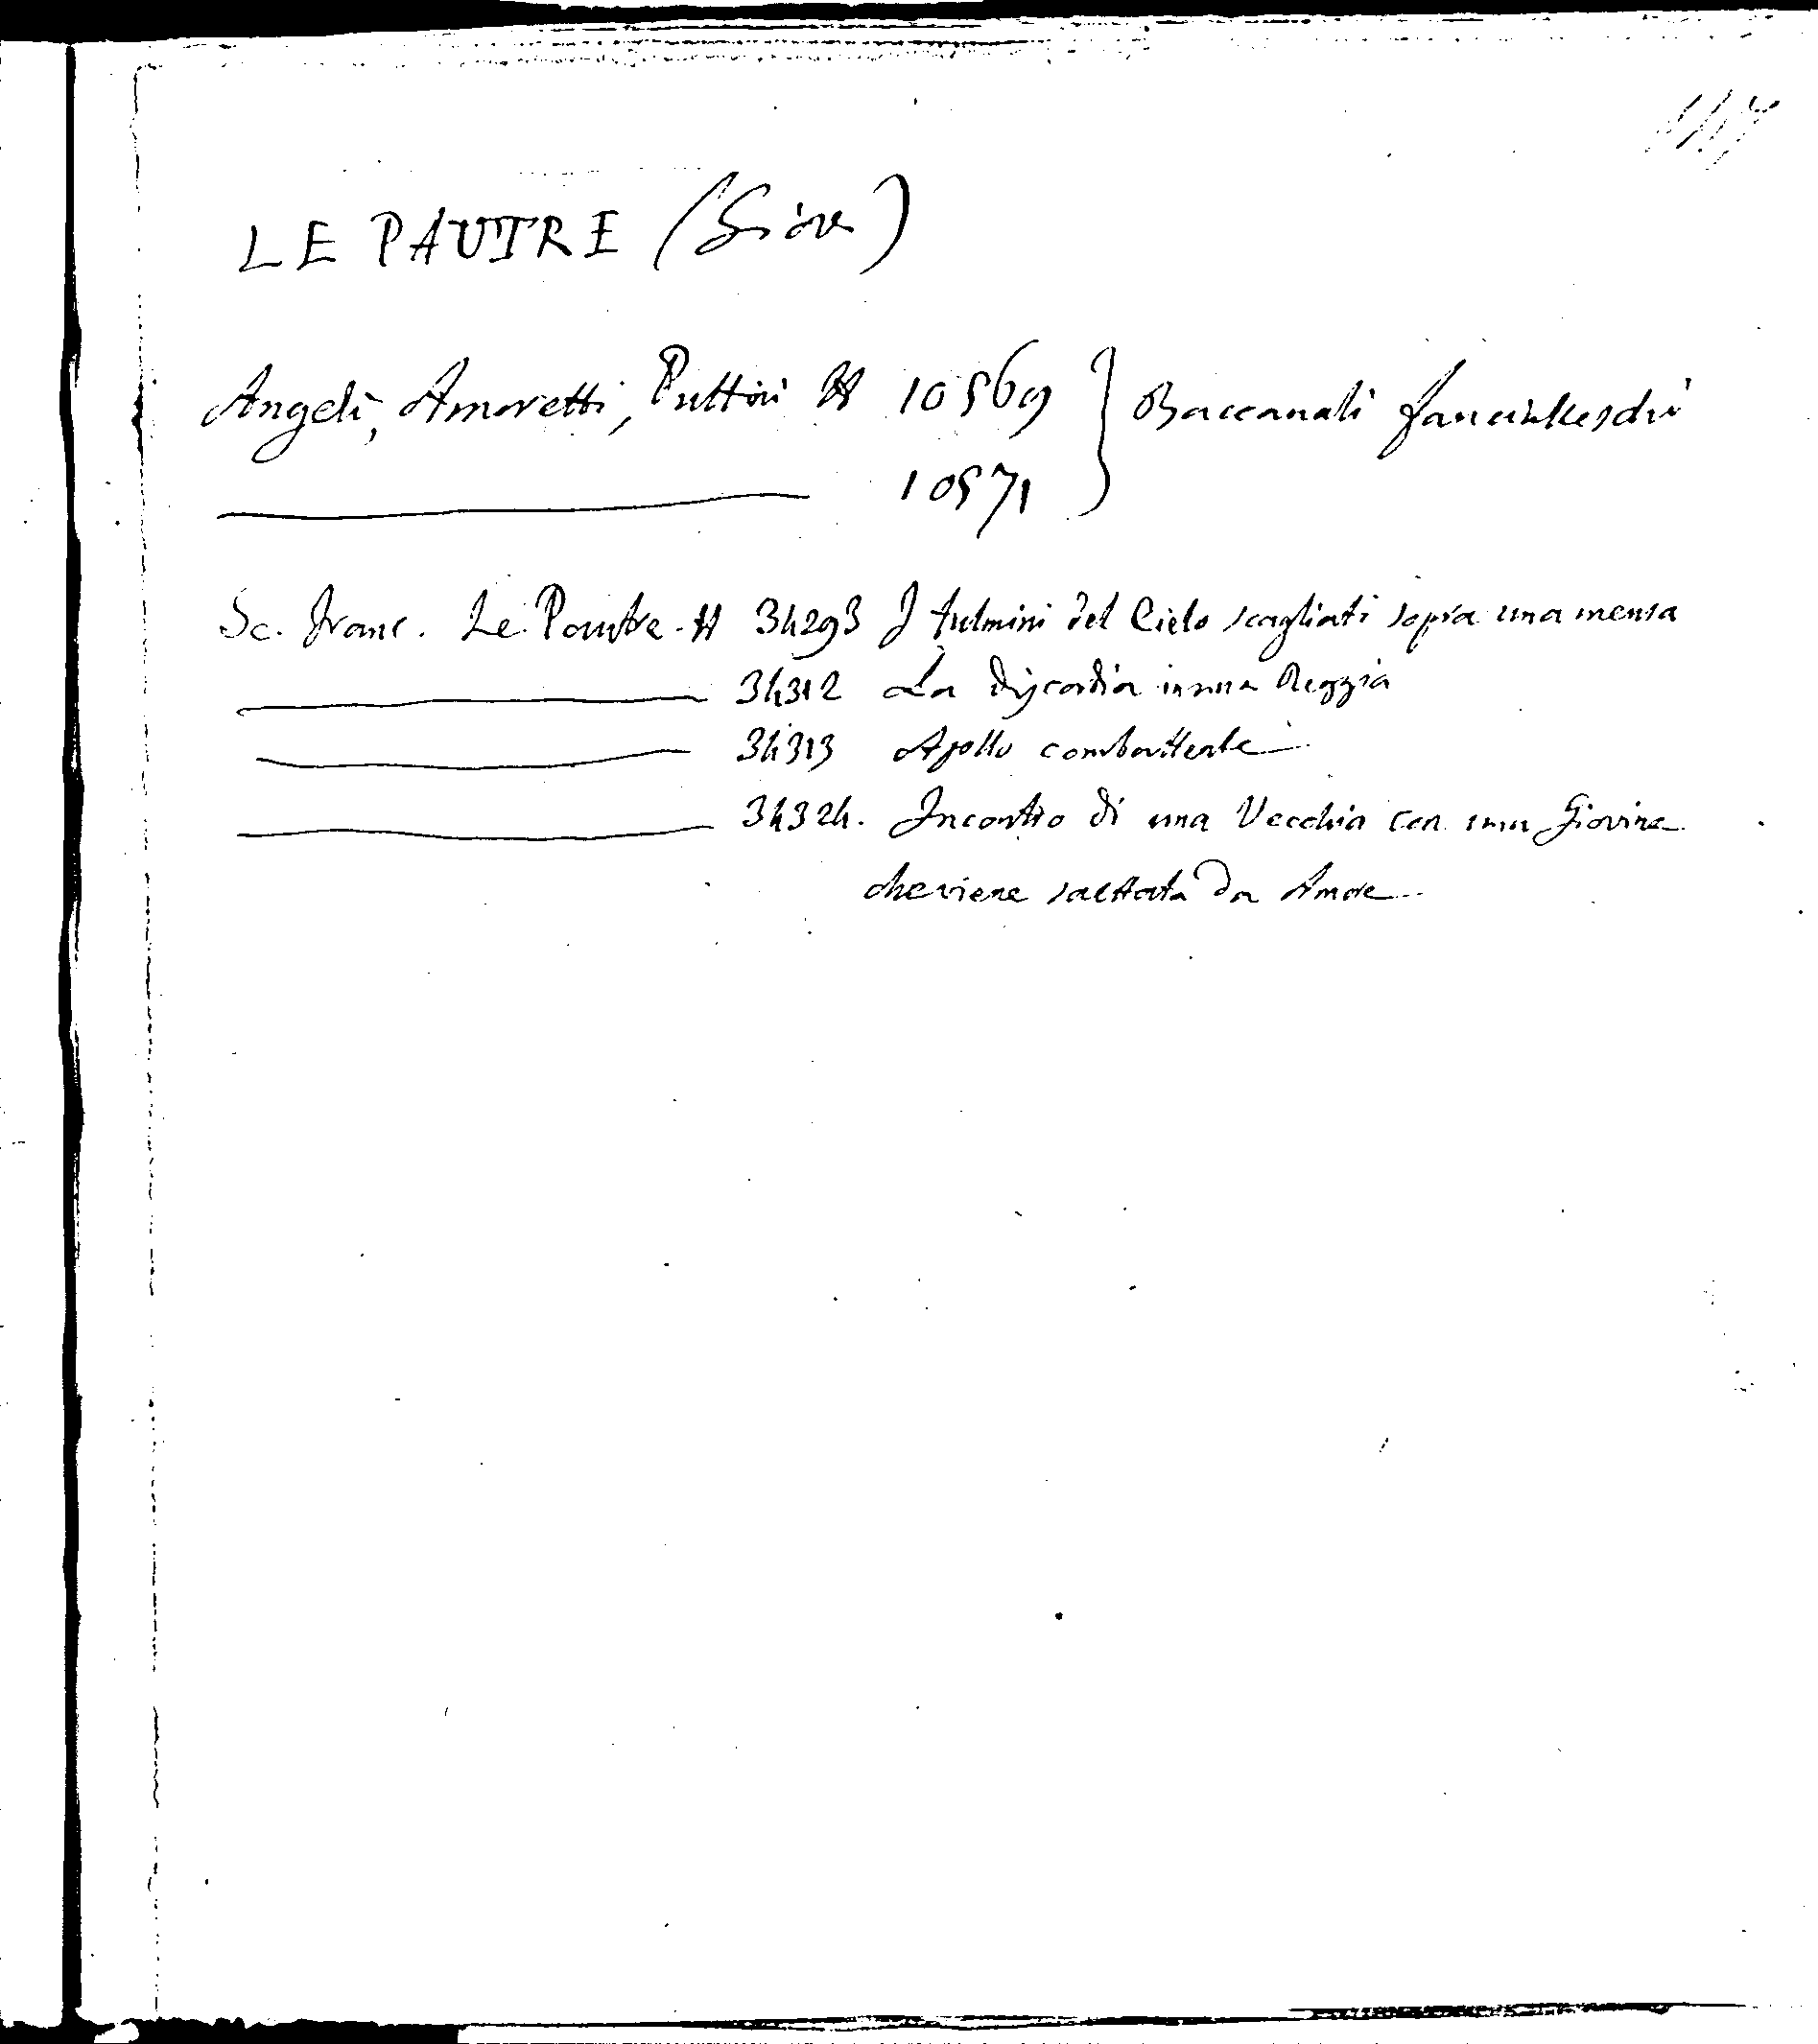 LE PAUTRE (Giov)
Angeli, Amoretti, Puttini H 10569 } Baccanali fanciulleschi
10571
Sc. Franc. Le Pautre. H 34293 I fulmini del Cielo scagliati sopra una mensa
34312 La discordia in una Reggia
34313 Apollo combattente
34324. Incontro di una Vecchia con una Giovine
che viene saettata da Amore